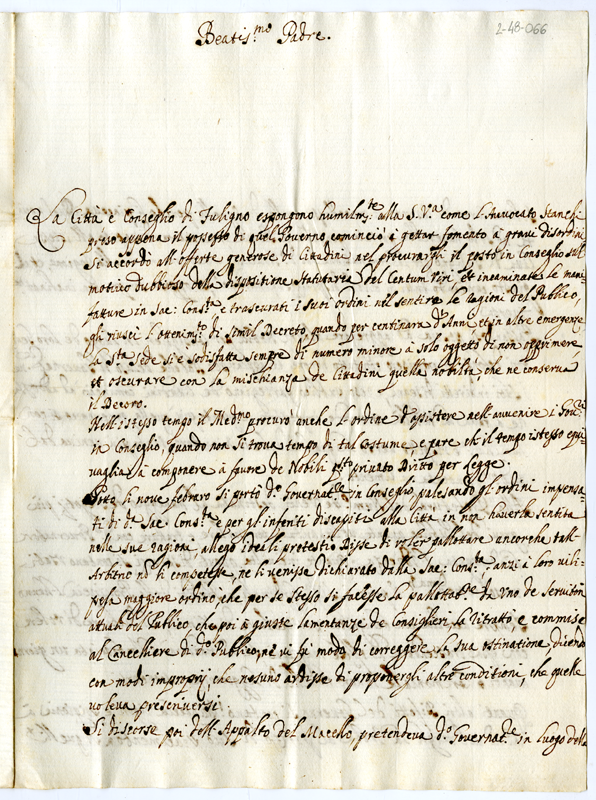 Beatis.mo Padre.
2-48-066
La Città e Conseglio di Fuligno espongono humilm.te alla S. V.a come l'Avvocato Stanchi
preso appena il possesso di quel Governo cominciò à gettar fomento a gravi disordini
Si accordò all'offerte generose di Cittadini nel procurargli il posto in Conseglio sul
motivo dubbioso della dispositione statutaria del Centum Viri, et incaminate le mani-
fatture in Sac: Cons.ta e trascurati i suoi ordini nel sentire le ragioni del Publico,
gli riuscì l'ottenim.to di simil Decreto, quando per centinara d'Anni, et in altre emergenze
la S.ta Sede si è sodisfatta sempre di numero minore à solo oggetto di non opprimere,
et oscurare con la mischianza de Cittadini quella nobiltà, che ne conserva
il Decoro.
Nell'istesso tempo il Med.mo procurò anche l'ordine d'esistere nell'avvenire i
in Conseglio, quando non si trova tempo di tal costume, e pare che il tempo istesso equi-
vaglia à componere à favore de Nobili privato Dritto per Legge.
Sotto li nove febraro si portò d.o Governat.re in Conseglio, palesando gl'ordini impensa
ti di d.a Sac: Cons.ta e per gl'inferiti discapiti alla Città in non haverla sentita
nelle sue ragioni, allegò protesti Disse di voler pallottare ancorche tall'
Arbitrio non li competesse, ne li venisse dichiarato dalla Sac: Cons.ta, anzi à loro vili-
pesa maggiore ordinò, che per se stesso si facesse la pallottat.ne da Uno de Servitori
attuali del Publico, che poi à giuste lamentanze de Consiglieri la ritrattò, e commise
al Cancelliere di d.o Publico, ne vi fù modo di correggere la sua ostinatione dicendo
con modi improprij che nesuno ardisse di proponergli altre conditioni, che quelle
voleva prescriversi.
Si discorse poi dell'Appalto del Macello, pretendeva d.o Governat.re in luogo della